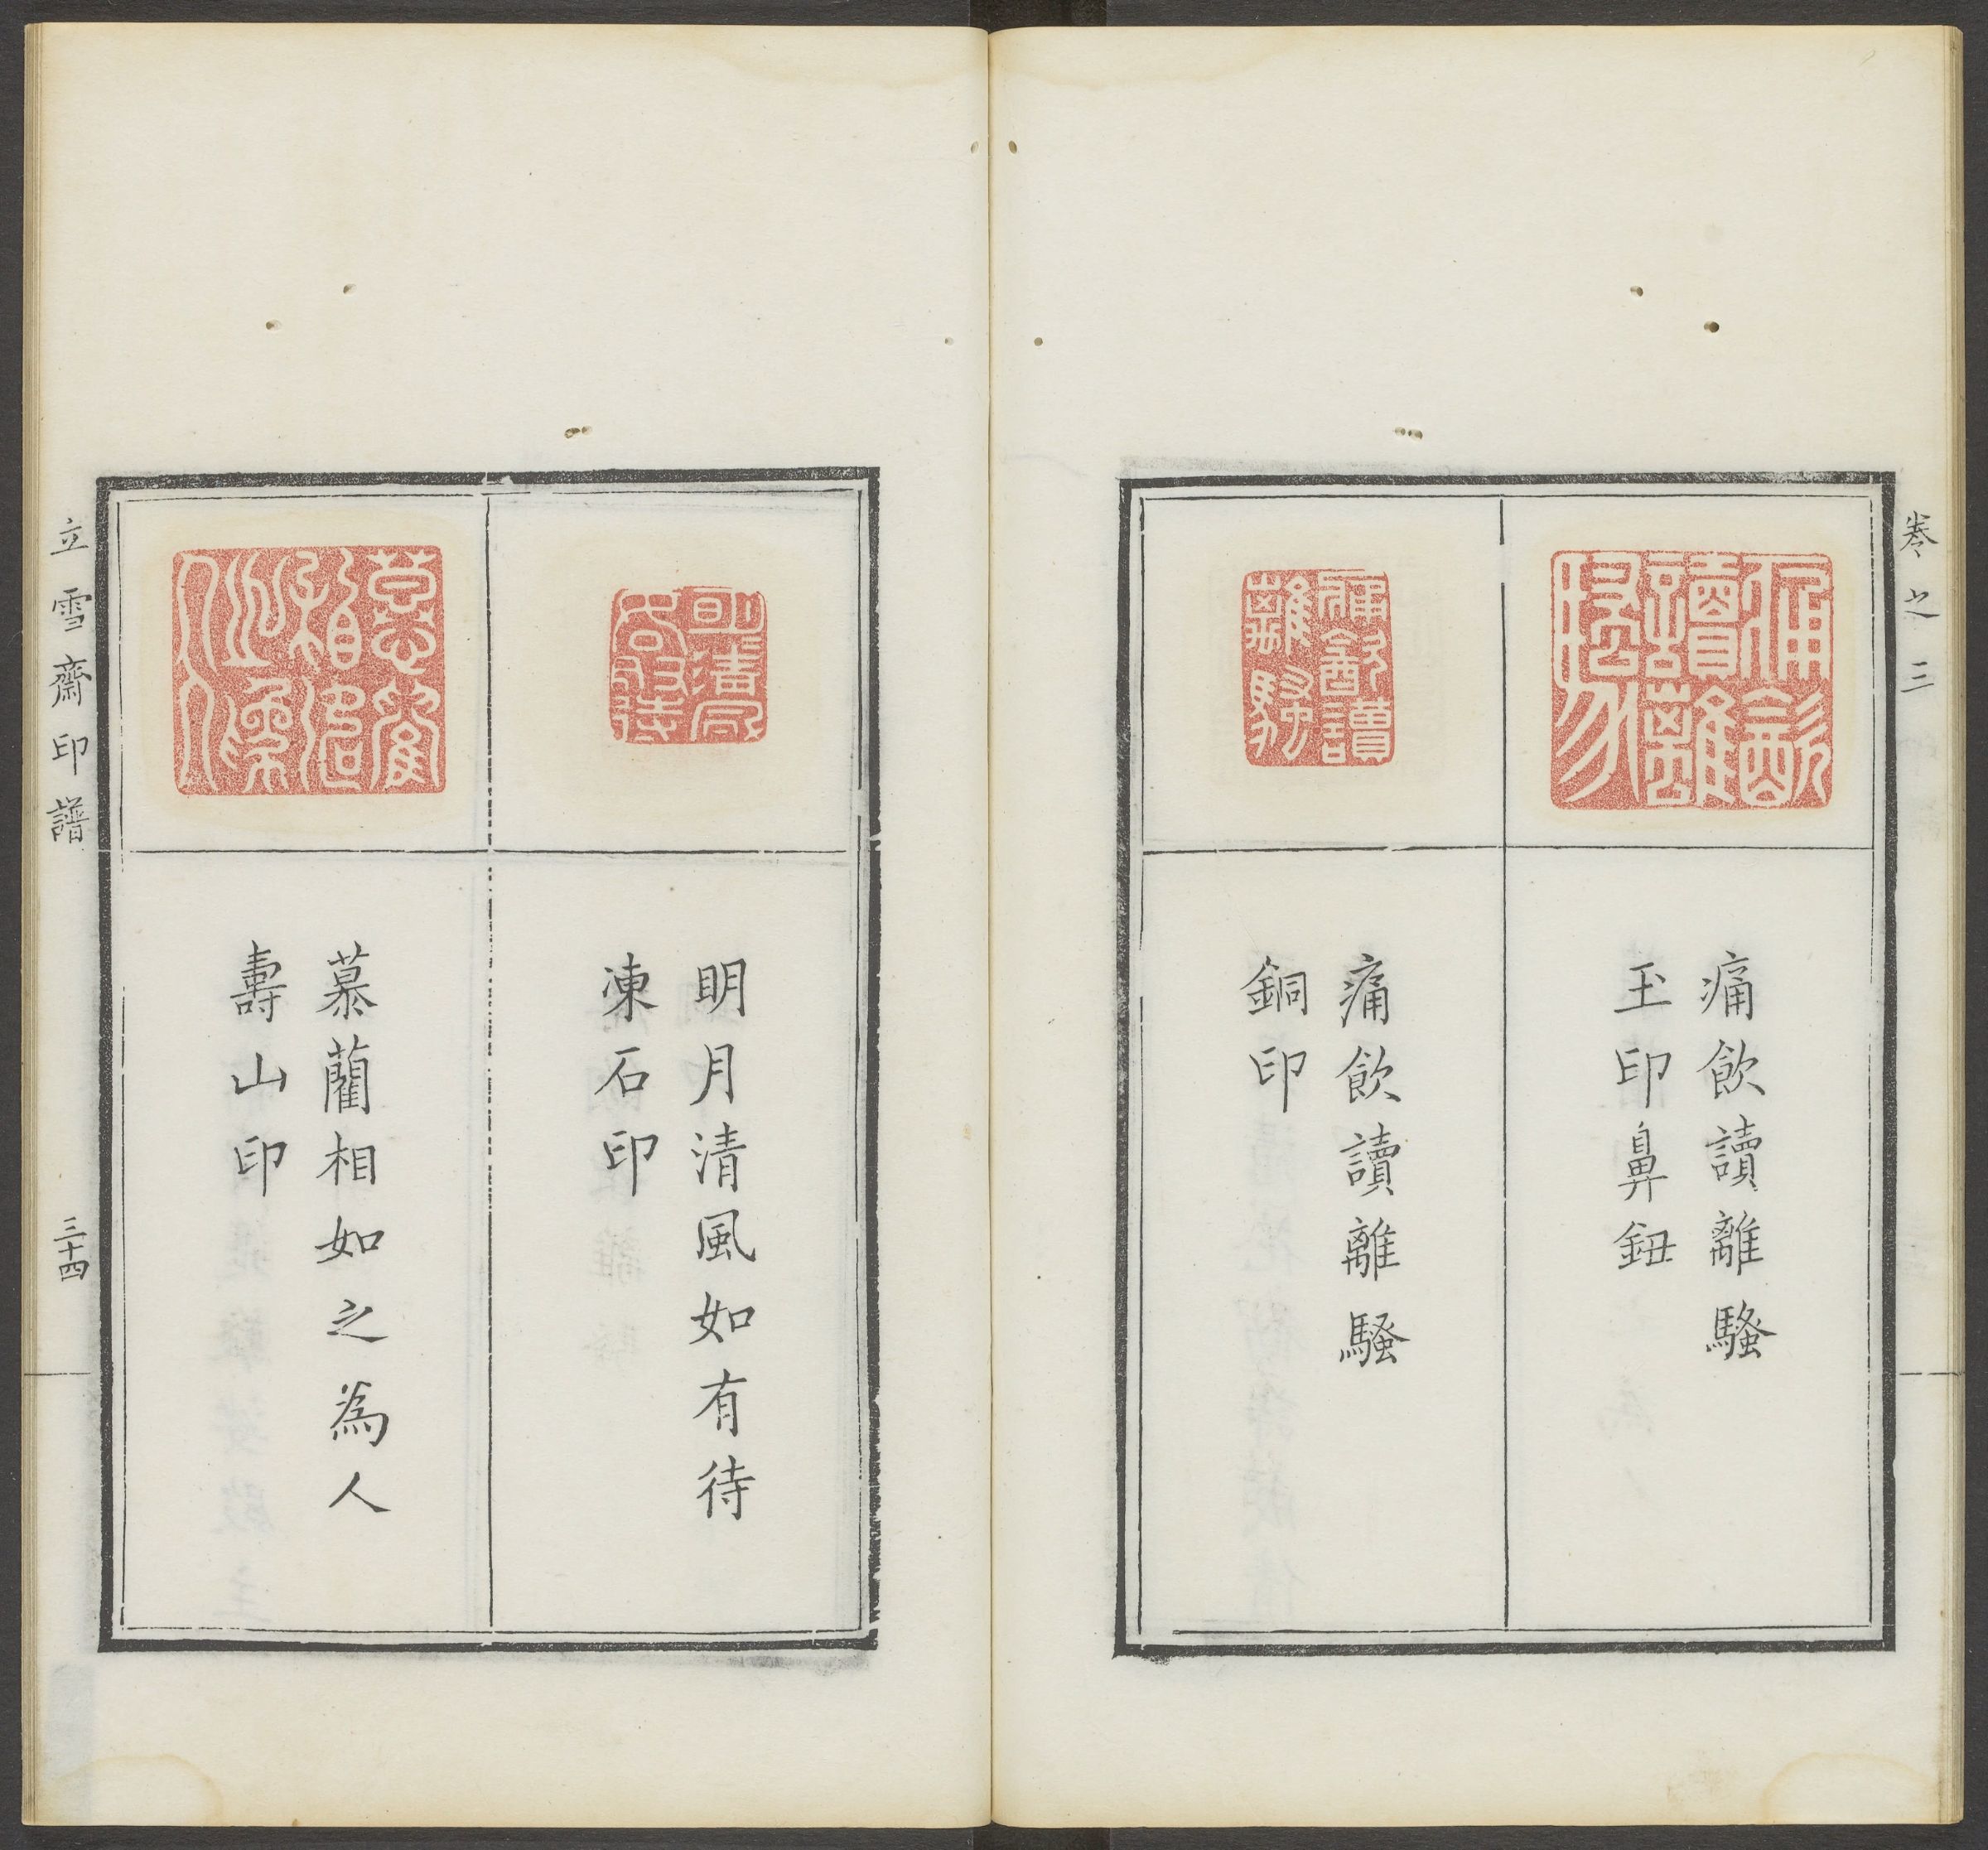 卷之三
痛飲讀離騷
玉印鼻鈕
痛飲讀離騷
銅印
明月清風如有待
凍石印
慕藺相如之為人
壽山印
立雪齋印譜
三十四